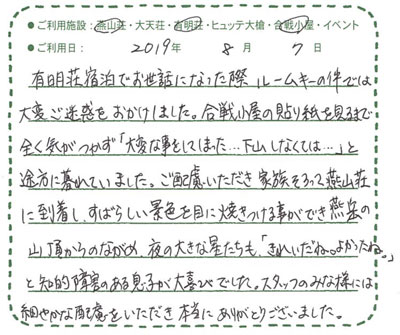 ●ご利用施設：燕山荘・大天荘・有明荘・ヒュッテ大槍・合戦小屋・イベント
●ご利用日： 2019年 8月 7日
有明荘宿泊でお世話になった際、ルームキーの件では
大変ご迷惑をおかけしました。合戦小屋の貼り紙を見るまで
全く気がつかず「大変な事をしてしまった…下山しなくては…」と
途方に暮れていました。ご配慮いただき家族そろって燕山荘
に到着し、すばらしい景色を目に焼きつける事ができ燕岳の
山頂からのながめ、夜の大きな星たちも、「きれいだね。よかったね。」
と知的障害のある息子が大喜びでした。スタッフのみな様には
細やかな配慮をいただき本当にありがとうございました。